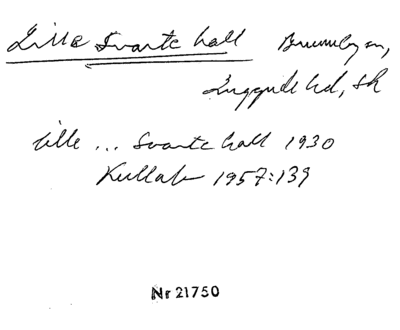 Lille Svarte hall Brunnby sn,
Luggude hd, Sk
lille ... Svarte hall 1930
Kullab 1957:139
Nr 21750